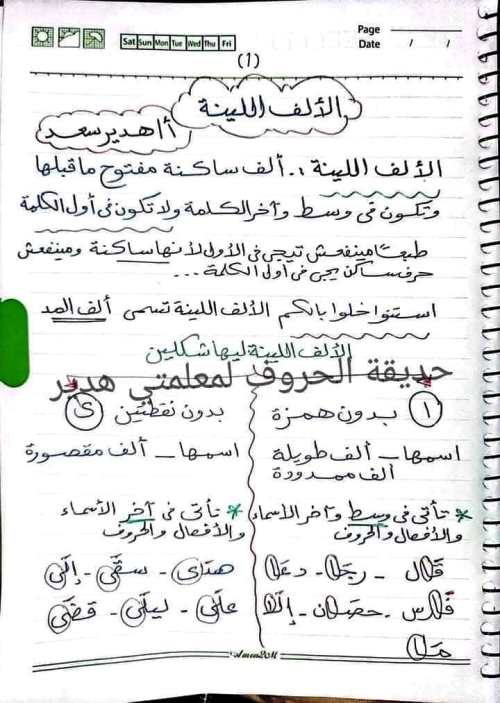 Page
Date / /
Sat Sun Mon Tue Wed Thu Fri
(1)
الألف اللينة
أ/ هدير سعد
الألف اللينة :. ألف ساكنة مفتوح ما قبلها
وتكون فى وسط وآخر الكلمة ولا تكون فى أول الكلمة
طبعًا مينفعش تيجى فى الأول لأنها ساكنة ومينفعش
حرف ساكن يجى فى أول الكلمة ...
استنوا خلوا بالكم الألف اللينة تسمى ألف المد
الألف اللينة ليها شكلين
حديقة الحروف لمعلمتي هدير
ا بدون همزة
اسمها - ألف طويلة
ألف ممدودة
* تأتى فى وسط وآخر الأسماء
والأفعال والحروف
قال - رجا - دعا
فارس - حصان - إلا
ما
بدون نقطتين ى
اسمها - ألف مقصورة
* تأتى فى آخر الأسماء
والأفعال والحروف
هدى - سقى - إلى
على - ليلى - قضى